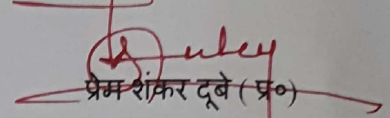 Dubey
प्रेम शंकर दूबे ( प्र०)